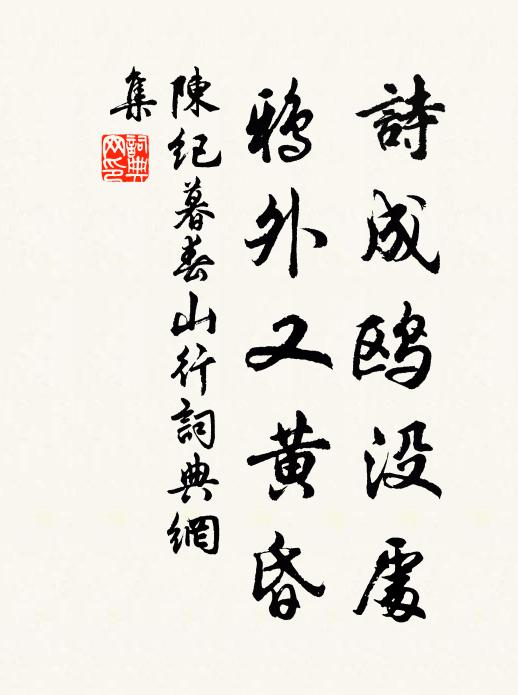 詩成鷗没處
鴉外又黃昏
陳紀暮春山行詞典網
集
詞典
网印